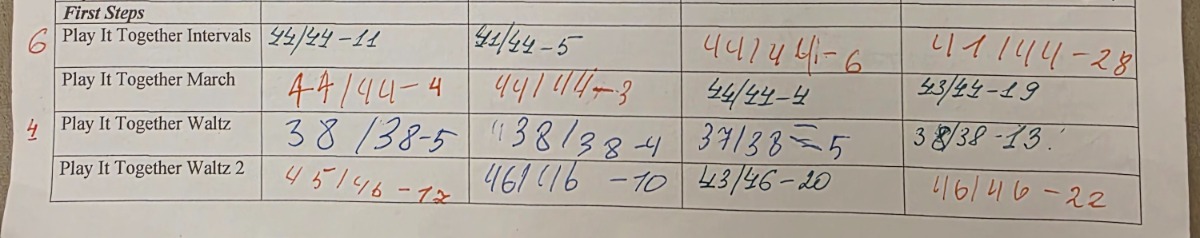 First Steps
6 Play It Together Intervals 44/44-11 41/44-5 44/44-6 41/44-28
Play It Together March 44/44-4 44/44-3 44/44-4 43/44-19
4 Play It Together Waltz 38/38-5 38/38-4 37/38-5 38/38-13.
Play It Together Waltz 2 45/46-12 46/46-10 43/46-20 46/46-22